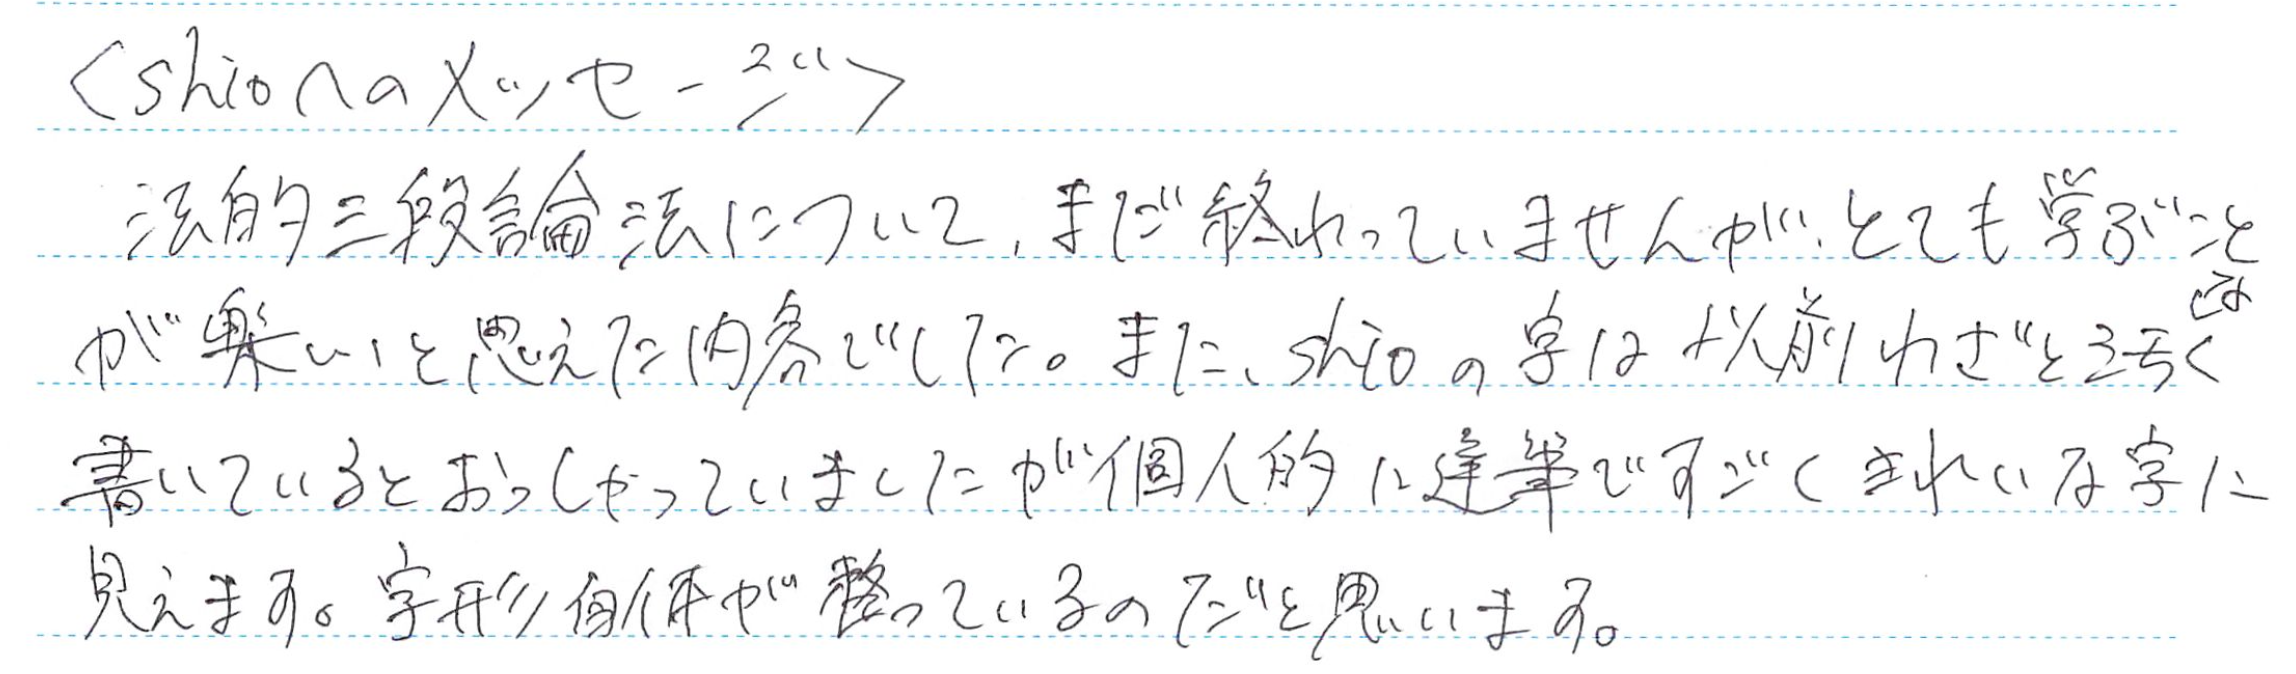 <shioへのメッセージ>
法的三段論法について、まだ終わっていませんが、とても学ぶこと
が楽しいと思えた内容でした。また、shioの字は以前わざと汚く
書いているとおっしゃっていましたが個人的に達筆ですごくきれいな字に
見えます。字形自体が整っているのだと思います。